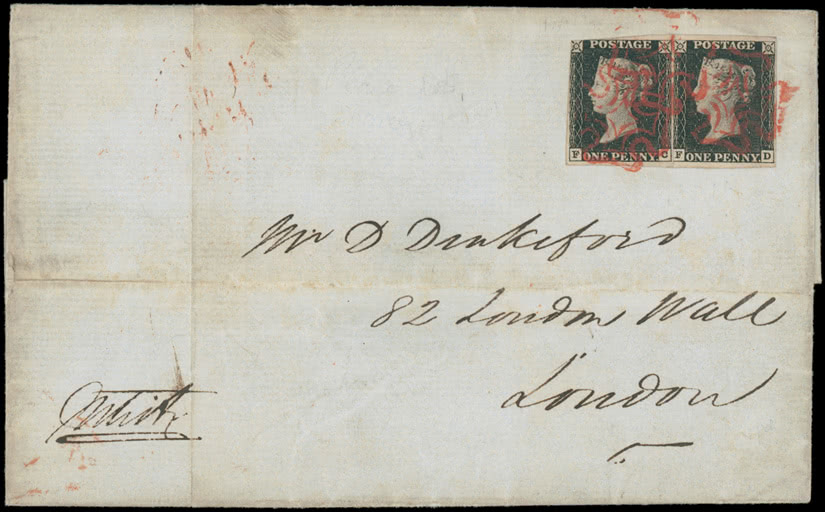 POSTAGE POSTAGE
F ONE PENNY C F ONE PENNY D
Mr D Drakeford
82 London Wall
London